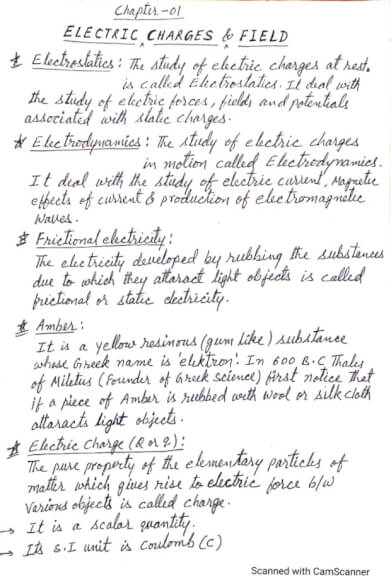 Chapter-01
ELECTRIC CHARGES & FIELD
* Electrostatics: The study of electric charges at rest.
is called Electrostatics. It deal with
the study of electric forces, fields and potentials
associated with static charges.
* Electrodynamics: The study of electric charges
in motion called Electrodynamics.
It deal with the study of electric current, Magnetic
effects of current & production of electromagnetic
waves.
* Frictional electricity:
The electricity developed by rubbing the substances
due to which they attaract light objects is called
frictional or static electricity.
* Amber:
It is a yellow resinous (gum like) substance
whose Greek name is 'elektron'. In 600 B.C Thales
of Miletus (Founder of Greek Science) first notice that
if a piece of Amber is rubbed with wool or silk cloth
attaracts light objects.
* Electric Charge (Q or q):
The pure property of the elementary particles of
matter which gives rise to electric force b/w
various objects is called charge.
→ It is a scalar quantity.
→ Its S.I unit is Coulomb (C)
Scanned with CamScanner